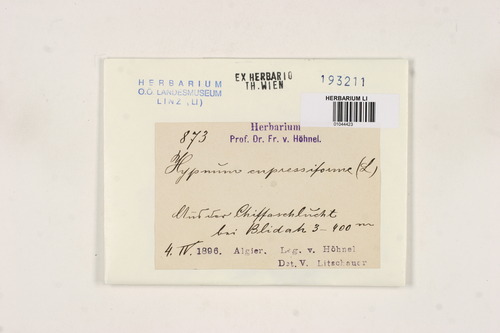 HERBARIUM
O.Ö. LANDESMUSEUM
LINZ (LI)
EX HERBARIO
TH. WIEN
193211
HERBARIUM LI
01044423
873
Herbarium
Prof. Dr. Fr. v. Höhnel.
Hypnum cupressiforme (L)
Aus der Chiffaschlucht
bei Blidah 3-400 m
4. IV. 1896. Algier. Leg. v. Höhnel
Det. V. Litschauer